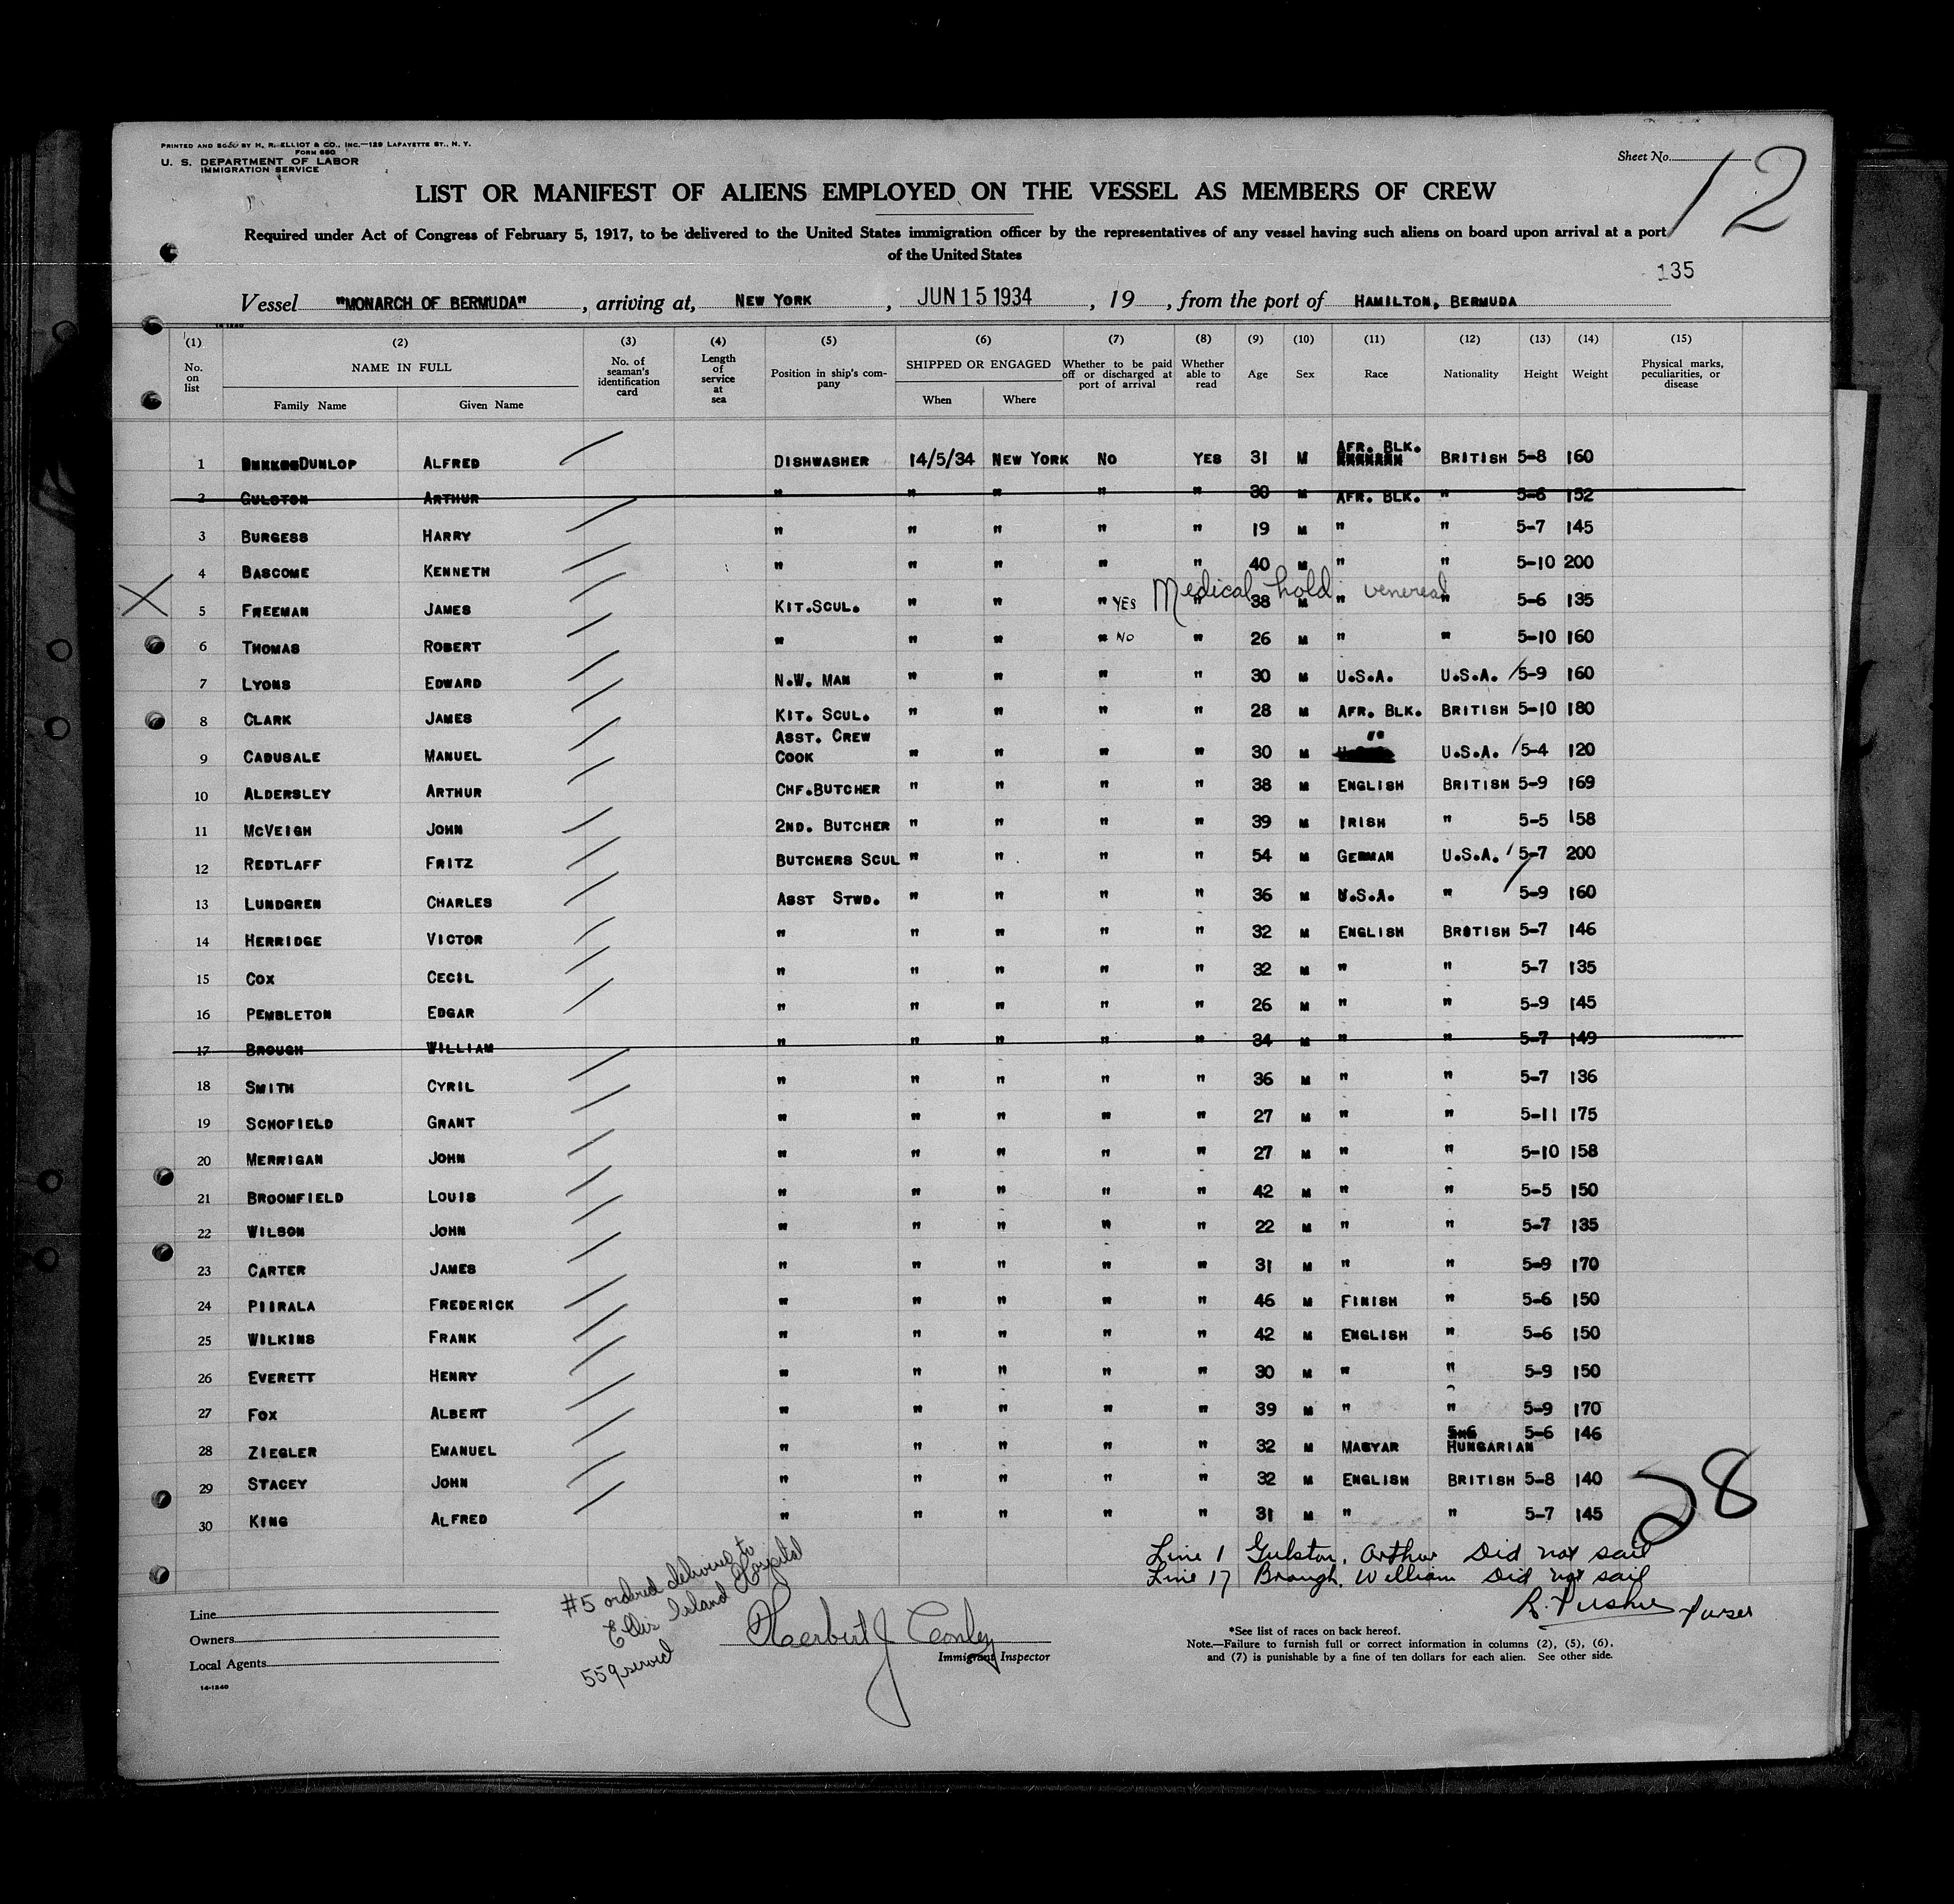 PRINTED AND SOLD BY H. R. ELLIOT & CO., INC.—129 LAFAYETTE ST., N. Y.
FORM 680
U. S. DEPARTMENT OF LABOR
IMMIGRATION SERVICE
Sheet No. 12
LIST OR MANIFEST OF ALIENS EMPLOYED ON THE VESSEL AS MEMBERS OF CREW
Required under Act of Congress of February 5, 1917, to be delivered to the United States immigration officer by the representatives of any vessel having such aliens on board upon arrival at a port
of the United States
135
Vessel "MONARCH OF BERMUDA", arriving at, NEW YORK, JUN 15 1934, 19, from the port of HAMILTON, BERMUDA
(1) No. on list (2) NAME IN FULL Family Name Given Name (3) No. of seaman's identification card (4) Length of service at sea (5) Position in ship's company (6) SHIPPED OR ENGAGED When Where (7) Whether to be paid off or discharged at port of arrival (8) Whether able to read (9) Age (10) Sex (11) Race (12) Nationality (13) Height (14) Weight (15) Physical marks, peculiarities, or disease
1 DUNLOP ALFRED DISHWASHER 14/5/34 NEW YORK NO YES 31 M AFR. BLK. BRITISH 5-8 160
2 GULSTON ARTHUR " " " " " 30 M AFR. BLK. " 5-6 152
3 BURGESS HARRY " " " " " 19 M " " 5-7 145
4 BASCOME KENNETH " " " " " 40 M " " 5-10 200
Medical hold venereal
5 FREEMAN JAMES KIT.SCUL. " " " YES " 38 M " " 5-6 135
6 THOMAS ROBERT " " " " NO " 26 M " " 5-10 160
7 LYONS EDWARD N.W. MAN " " " " 30 M U.S.A. U.S.A. 5-9 160
8 CLARK JAMES KIT. SCUL. " " " " 28 M AFR. BLK. BRITISH 5-10 180
9 CADUSALE MANUEL ASST. CREW COOK " " " " 30 M " U.S.A. 5-4 120
10 ALDERSLEY ARTHUR CHF.BUTCHER " " " " 38 M ENGLISH BRITISH 5-9 169
11 MCVEIGH JOHN 2ND. BUTCHER " " " " 39 M IRISH " 5-5 158
12 REDTLAFF FRITZ BUTCHERS SCUL " " " " 54 M GERMAN U.S.A. 5-7 200
13 LUNDGREN CHARLES ASST STWD. " " " " 36 M U.S.A. " 5-9 160
14 HERRIDGE VICTOR " " " " " 32 M ENGLISH BRITISH 5-7 146
15 COX CECIL " " " " " 32 M " " 5-7 135
16 PEMBLETON EDGAR " " " " " 26 M " " 5-9 145
17 BROUGH WILLIAM " " " " " 34 M " " 5-7 149
18 SMITH CYRIL " " " " " 36 M " " 5-7 136
19 SCHOFIELD GRANT " " " " " 27 M " " 5-11 175
20 MERRIGAN JOHN " " " " " 27 M " " 5-10 158
21 BROOMFIELD LOUIS " " " " " 42 M " " 5-5 150
22 WILSON JOHN " " " " " 22 M " " 5-7 135
23 CARTER JAMES " " " " " 31 M " " 5-9 170
24 PIIRALA FREDERICK " " " " " 46 M FINISH " 5-6 150
25 WILKINS FRANK " " " " " 42 M ENGLISH " 5-6 150
26 EVERETT HENRY " " " " " 30 M " " 5-9 150
27 FOX ALBERT " " " " " 39 M " " 5-9 170
28 ZIEGLER EMANUEL " " " " " 32 M MAGYAR HUNGARIAN 5-6 146
29 STACEY JOHN " " " " " 32 M ENGLISH BRITISH 5-8 140
30 KING ALFRED " " " " " 31 M " " 5-7 145
28
Line 1 Gulston, Arthur Did not sail
Line 17 Brough, William Did not sail
Purser
#5 ordered delivering to
Ellis Island Hospital
559 served
Line
Owners
Local Agents
14-1240
Herbert J Conley
Immigrant Inspector
*See list of races on back hereof.
Note.—Failure to furnish full or correct information in columns (2), (5), (6),
and (7) is punishable by a fine of ten dollars for each alien. See other side.